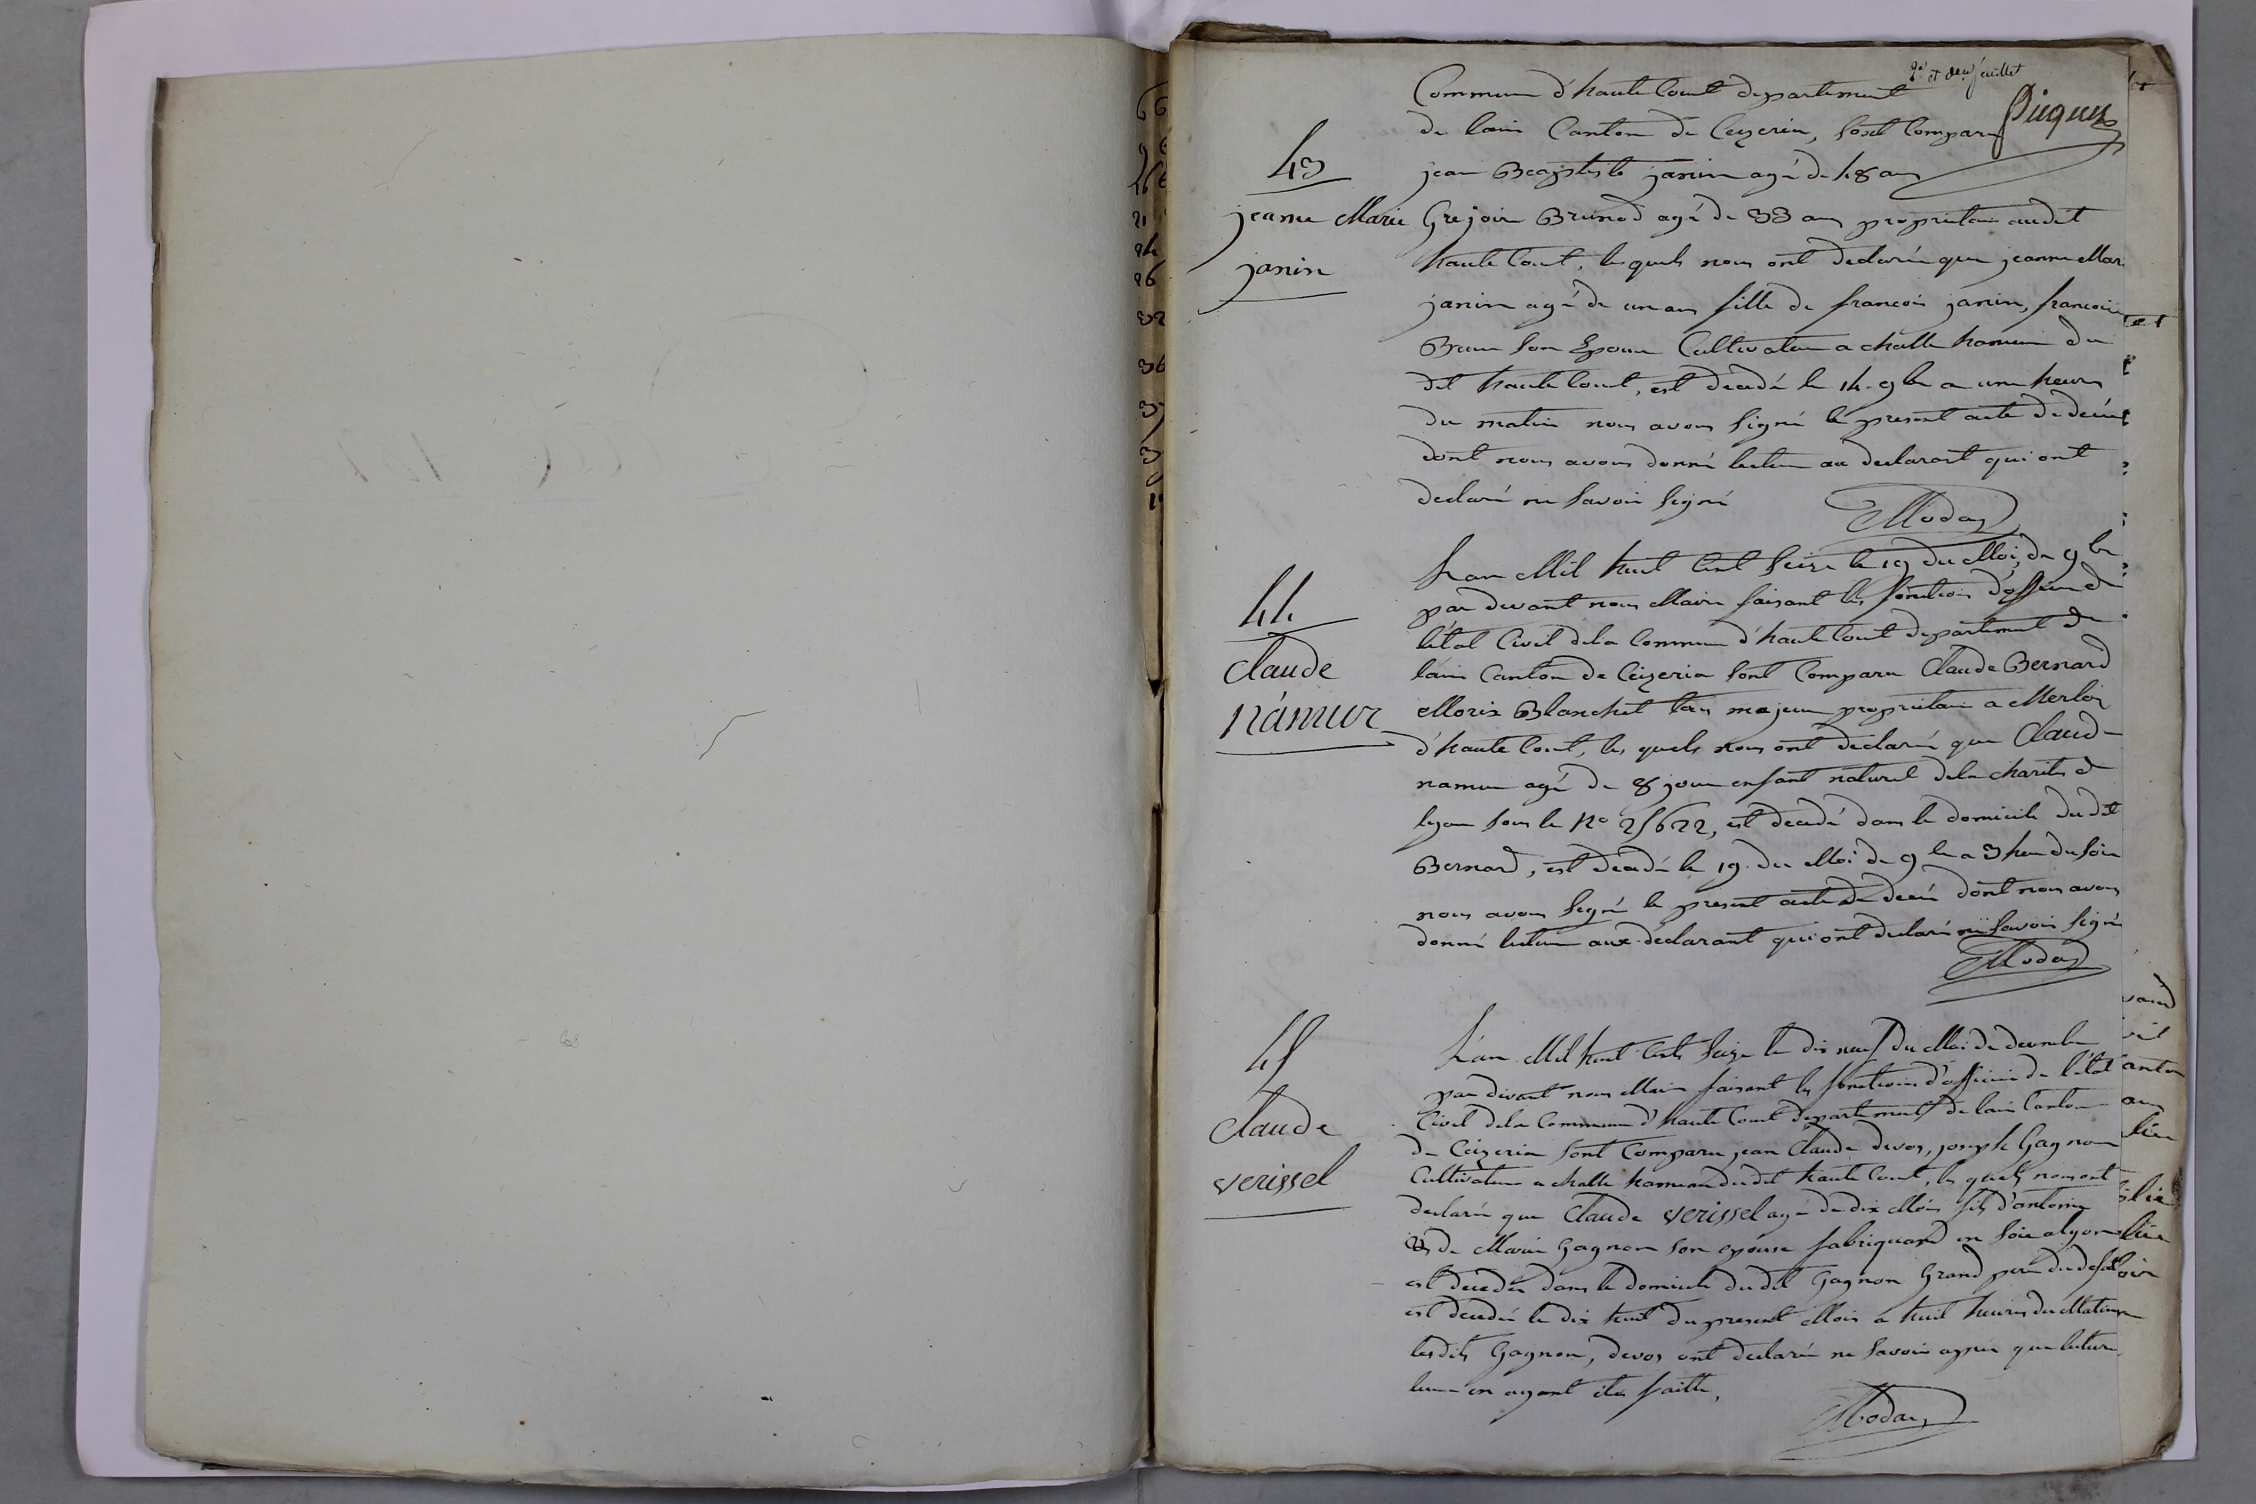 2e et deux feuillet
Commune d'hautecourt departement
Piquet
de lain Canton de Ceyzeria, sont Comparu
43
jean Baptiste janin agé de 48 ans
jeanne Marie
Grejoir Brunod agé de 33 ans propriétair audit
janin
haute Court, les quels nous ont declarée que jeanne Mar
janin agé de un an fille de francois janin, francoise
Brun son Epouse Cultivateur a challe hameau du
dit haute Court, est décedé le 14. 9bre a une heures
du matin nous avons signé le present acte de décès
dont nous avons donné lecture au declarant qui ont
declaré ne savoir signé
Moday
44
Lan Mil huit Cent Seize le 19 du Moi de 9bre
par devant nous Maire faisant les fonctions d'officier de
Claude
létat Civil dela Commune d'haute Court departement de
namur
lain Canton de Ceizeria sont Comparu Claude Bernard
Morix Blanchet tous majeur propriétair a Merloz
d'haute Court, les quels nous ont déclaré que Claude
namur agé de 8 jour enfant naturel dela charité de
lyon sous le No 25622, est decedé dans le domicile dudit
Bernard, est decedé le 19. du Moi de 9bre a 3 heur du soir
nous avons signé le present acte de decès dont nous avons
donné lecture aux déclarant qui ont declaré ne savoir signé
Moday
45
Lan Mil huit Cents Seize le dix neuf du Moi de decembre
par devant nous Maire faisant les fonctions d'officier de l'état
Claude
Civil dela Commune d'haute Court departement de lain Canton
verissel
de Ceizeria sont Comparu jean Claude devos, joseph Gagnon
Cultivateur a challe hameau dudit haute Court, les quels nous ont
declarée que Claude verissel agé de dix Mois fils d'antoine
& de Marie Gagnon son épouse fabriquand en soie a lyon
est décédés dans le domicile dudit Gagnon Grand pere du defunt
est decedée le dix huit du present Mois a huit heures du Matin
lesdits Gagnon, devos ont declarée ne savoir signer que lecture
leur en ayant étés faitte,
Moday